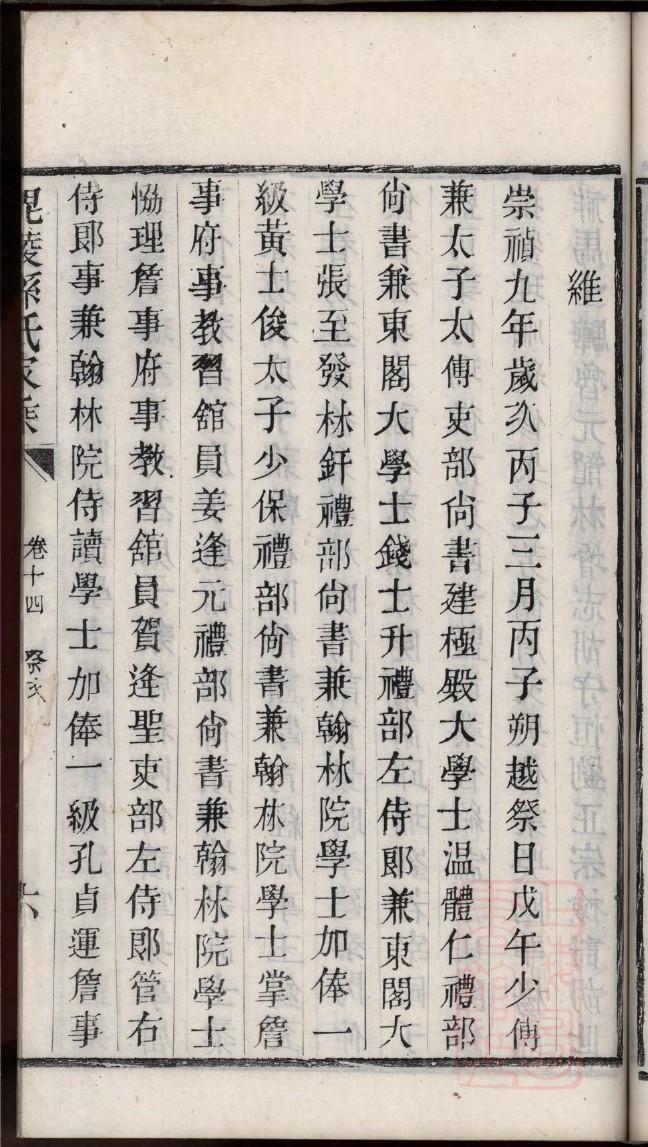 維
崇禎九年歲次丙子三月丙子朔越祭日戊午少傅
兼太子太傅吏部尙書建極殿大學士温體仁禮部
尙書兼東閣大學士錢士升禮部左侍郎兼東閣大
學士張至發林釬禮部尙書兼翰林院學士加俸一
級黃士俊太子少保禮部尙書兼翰林院學士掌詹
事府事教習舘員姜逢元禮部尙書兼翰林院學士
恊理詹事府事教習舘員賀逢聖吏部左侍郎管右
侍郎事兼翰林院侍讀學士加俸一級孔貞運詹事
毘陵孫氏家乘
卷十四 祭文
六